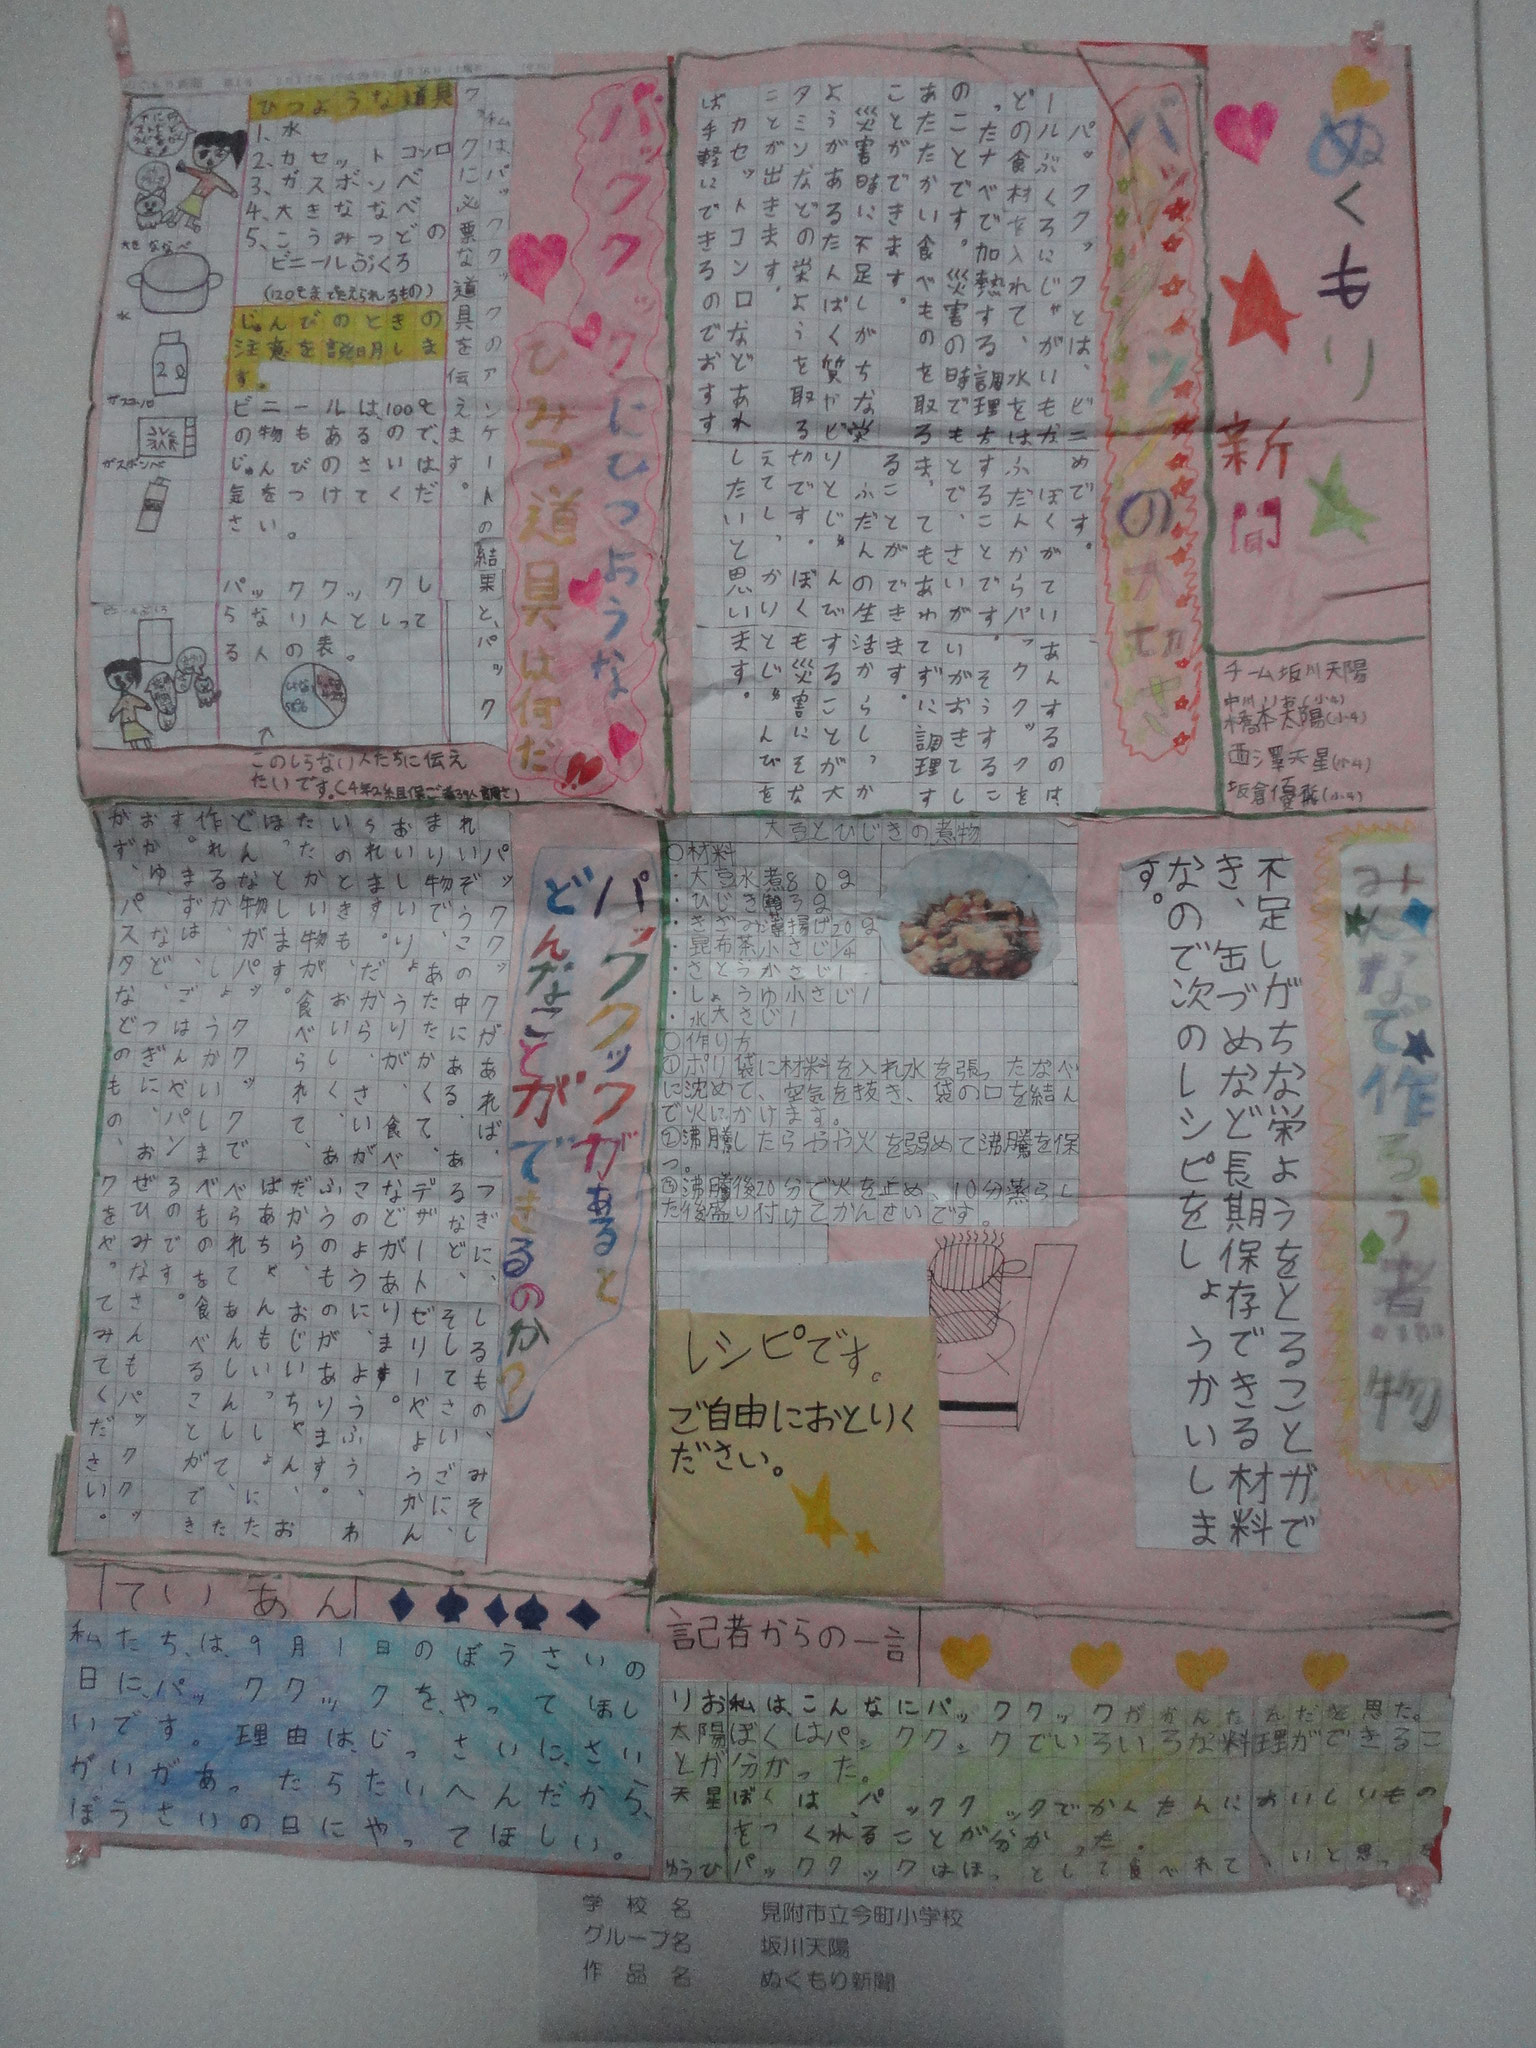 ぬくもり
新聞
チーム坂川天陽
橋本太陽(小4)
西澤天星(小4)
パッククックの大切さ
パッククックとは、ビニ
ールぶくろにじゃがいもな
どの食材を入れて、水をは
ったナベで加熱する調理方
のことです。災害の時でも
あたたかい食べものを取る
ことができます。
災害時に不足しがちな栄
ようがあるたんぱく質やビ
タミンなどの栄ようを取る
ことが出きます。
カセットコンロなどあれ
ば手軽にできるのでおすす
めです。
ぼくがていあんするのは
ふだんからパッククックを
することです。そうするこ
とで、さいがいがおきてし
ま、てもあわてずに調理す
ることができます。
ふだんの生活からしっか
りとじゅんびすることが大
切です。ぼくも災害にそな
えてしっかりとじゅんびを
したいと思います。
パッククックにひつような
ひみつ道具は何だ
クチームは、パッククックのアンケートの結果と、パック
クに必要な道具を伝えます。
ひつような道具
1、水
2、カセットコンロ
3、ガスボンベ
4、大きななべ
5、こうみつどの
ビニールぶくろ
(120℃まで耐えられるもの)
じゅんびのときの
注意を説明しま
す。
ビニールは100℃
の物もあるので、
じゅんびのさいは
気をつけてくだ
さい。
パッククックし
らない人としって
る人の表。
大きななべ
水
2ℓ
ガスコンロ
ガスボンベ
このしらない人たちに伝え
たいです。(4年2組保ご者39人調さ)
みんなで作ろう煮物
不足しがちな栄ようをとることがで
き、缶づめなど長期保存できる材料
なので次のレシピをしょうかいしま
す。
大豆とひじきの煮物
○材料
・大豆水煮80g
・ひじき
・きざみ薄揚げ20g
・昆布茶小さじ1/4
・さとう小さじ1
・しょうゆ小さじ1
・水大さじ1
○作り方
①ポリ袋に材料を入れ水を張ったなべ
に沈めて、空気を抜き、袋の口を結ん
で火にかけます。
②沸騰したらやや火を弱めて沸騰を保
つ。
③沸騰後20分で火を止め、10分蒸らし
た後盛り付けてかんせいです。
レシピです。
ご自由におとりく
ださい。
パッククックがあると
どんなことができるのか?
パッククックがあれば、
れいぞうこの中にある、あ
まり物で、あたたかくて、
おいしいりょうりが、食べ
られます。だから、さいが
いのときも、おいしく、あ
たたかい物が食べられて、
ほっとします。
どんな物がパッククックで
作れるか、しょうかいしま
す。まずは、ごはんやパン
おかゆなど、つぎに、お
かず、パスタなどのもの、
つぎに、しるもの、みそし
るなど、そしてさいごに、
デザートゼリーやようかん
などがあります。
このように、ようふう、わ
ふうのものがあります。
だから、おじいちゃん、お
ばあちゃんもいっしょにた
べられてあんしんして、た
べものを食べることができ
るのです。
ぜひみなさんもパッククッ
クをやってみてください。
ていあん
私たちは、9月1日のぼうさいの
日に、パッククックをやってほし
いです。理由は、じっさいに、さい
がいがあったらたいへんだから、
ぼうさいの日にやってほしい。
記者からの一言
りお私は、こんなにパッククックがかんたんだなと思った。
太陽ぼくはパッククックでいろいろな料理ができるこ
とが分かった。
天星ぼくは、パッククックでかんたんにおいしいもの
をつくれることが分かった。
ゆうひパッククックはほっとして食べれて、いいと思った
学校名 見附市立今町小学校
グループ名 坂川天陽
作品名 ぬくもり新聞